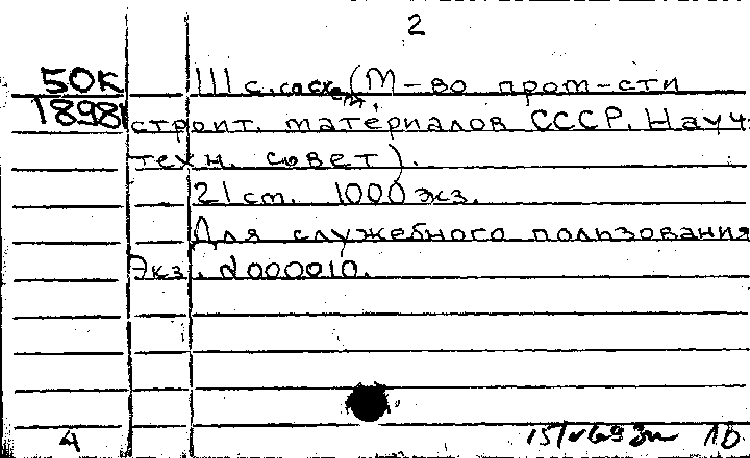 2
50К
1898
111 с. со сх. (М-во пром-сти
строит. материалов СССР. Науч.-
техн. совет).
21 см. 1000 экз.
Для служебного пользования
Экз. 2000010.
4